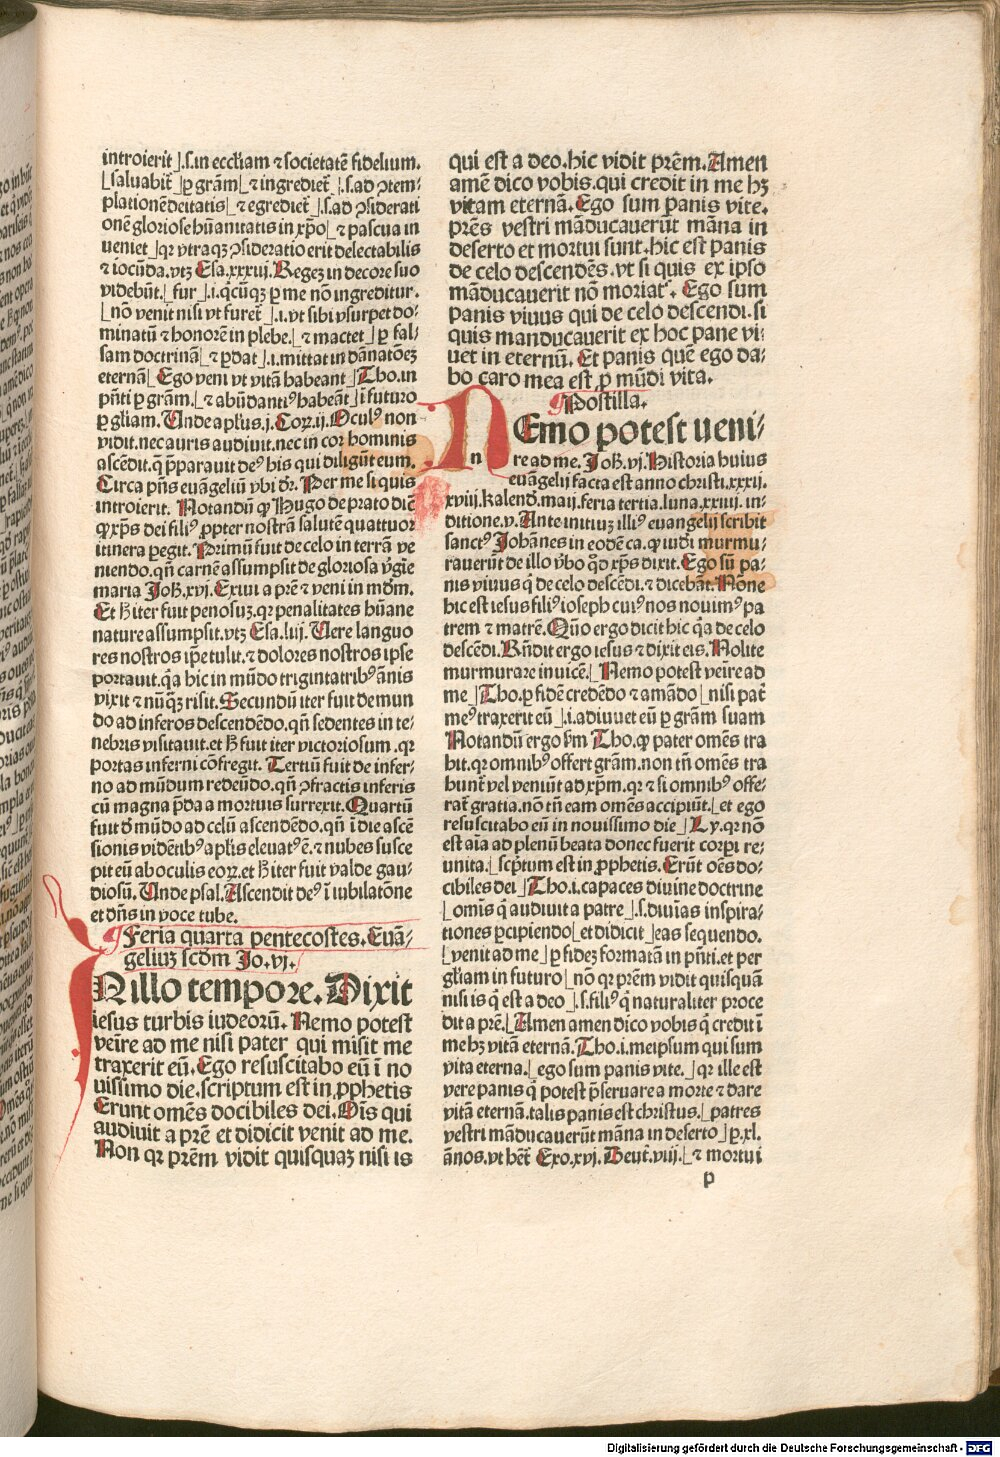 introierit ⌋.s.in eccl̃iam ⁊ societatẽ fidelium.
⌊saluabit̃ ⌋ꝑ grãm⌊ ⁊ ingrediet̃ ⌋.s.ad ꝯtem-
plationẽ deitatis⌊ ⁊ egrediet̃ ⌋.s.ad ꝯsiderati
onẽ gloriose hũanitatis in xp̃o⌊ ⁊ pascua in
ueniet ⌋qꝛ vtraqꝫ ꝯsideratio erit delectabilis
⁊ iocũda.vtꝫ Esa.xxxiij.Regeꝫ in decore suo
videbũt.⌊fur⌋.i.q̃cũqꝫ ꝑ me nõ ingreditur.
⌊nõ venit nisi vt furet̃⌋.i.vt sibi vsurpet do-
minatũ ⁊ honorẽ in plebe.⌊ ⁊ mactet ⌋ ꝑ fal-
sam doctrinã⌊ ⁊ ꝑdat ⌋.i.mittat in dãnatõeꝫ
eternã⌊ Ego veni vt vitã habeant ⌋Tho.in
pñti ꝑ grãm.⌊ ⁊ abũdantiꝰ habeãt⌋ ĩ futuro
ꝑ gl̃iam.Unde aplũs.j.Coꝝ.ij.Oculꝰ non
vidit.nec auris audiuit.nec in cor hominis
ascẽdit.q̃ p̃parauit deꝰ his qui diligũt eum.
Circa pñs euãgeliũ vbi dr̃.Per me si quis
introierit. Notandũ ꝙ Hugo de prato dicit̃
ꝙ xp̃s dei filiꝰ ꝓpter nostrã salutẽ quattuor
itinera ꝑegit.Primũ fuit de celo in terrã ve
niendo.qñ carnẽ assumpsit de gloriosa v̾gĩe
maria Joh̃.xvj.Exiui a prẽ ⁊ veni in mdm̃.
Et h̃ iter fuit penosuꝫ.qꝛ penalitates hũane
nature assumpsit.vtꝫ Esa.liij.Uere languo
res nostros ip̃e tulit.⁊ dolores nostros ipse
portauit.q̃a hic in mũdo trigintatribꝰ ãnis
vixit ⁊ nũq̃ꝫ risit.Secundũ iter fuit de mun
do ad inferos descendẽdo.qñ sedentes in te-
nebris visitauit.et h̃ fuit iter victoriosum.qꝛ
portas inferni cõfregit. Tertiũ fuit de infer-
no ad mũdum redeũdo.qñ ꝯfractis inferis
cũ magna p̃da a mortuis surrexit.Quartũ
fuit d̾ mũdo ad celũ ascendẽdo.qñ ĩ die ascẽ
sionis vidẽtibꝰ apl̃is eleuatꝰ ẽ.⁊ nubes susce
pit eũ ab oculis eoꝝ.et h̃ iter fuit valde gau-
diosũ.Unde psal.Ascendit deꝰ ĩ iubilatõne
et dñs in voce tube.
¶Feria quarta pentecostes.Euã-
geliuꝫ scdm̃ Jo.vj.
Nillo tempore.Dixit
iesus turbis iudeorũ. Nemo potest
veĩre ad me nisi pater qui misit me
traxerit eũ.Ego resuscitabo eũ ĩ no
uissimo die.scriptum est in ꝓphetis
Erunt omẽs docibiles dei.Oĩs qui
audiuit a prẽ et didicit venit ad me.
Non qꝛ prẽm vidit quisquaꝫ nisi is
qui est a deo.hic vidit prẽm.Amen
amẽ dico vobis.qui credit in me hꝫ
vitam eternã.Ego sum panis vite.
prẽs vestri mãducauerũt mãna in
deserto et mortui sunt.hic est panis
de celo descendẽs.vt si quis ex ipso
mãducauerit nõ moriat̃. Ego sum
panis viuus qui de celo descendi.si
quis manducauerit ex hoc pane vi-
uet in eternũ. Et panis quẽ ego da-
bo caro mea est ꝓ mũdi vita.
¶Postilla.
NEmo potest ueni-
n
re ad me. Joh̃.vj.Historia huius
euãgelij facta est anno christi.xxxij.
xviij.kalend̾.maij.feria tertia.luna.xxiiij.in-
ditione.v.Ante initiuꝫ illiꝰ euangelij scribit
sanctꝰ Johãnes in eodẽ ca.ꝙ iudei murmu-
rauerũt de illo v̾bo qd̾ xp̃s dixit.Ego sũ pa-
nis viuus q̃ de celo descẽdi.⁊ dicebãt.Nõne
hic est iesus filiꝰ ioseph cuiꝰ nos nouimꝰ pa
trem ⁊ matrẽ.Qũo ergo dicit hic q̃a de celo
descẽdi.Rñdit ergo iesus ⁊ dixit eis.Nolite
murmurare inuicẽ.⌊Nemo potest veĩre ad
me ⌋Tho.ꝑ fidẽ credẽdo ⁊ amãdo ⌊nisi pat̃
meꝰ traxerit eũ ⌋.i.adiuuet eũ ꝑ grãm suam
Notandũ ergo s̃m Tho.ꝙ pater omẽs tra
hit.qꝛ omnibꝰ offert grãm.non tñ omẽs tra
hunt̃ vel veniũt ad xp̃m.qꝛ ⁊ si omnibꝰ offe-
rat̃ gratia.nõ tñ eam omẽs accipiũt.⌊et ego
resuscitabo eũ in nouissimo die⌋Ly.qꝛ nõ
est aĩa ad plenũ beata donec fuerit corpi re-
unita.⌊scp̃tum est in ꝓphetis.Erũt oẽs do-
cibiles dei ⌋Tho.i.capaces diuine doctrine
⌊omĩs q̃ audiuit a patre⌋.s.diuĩas inspira-
tiones ꝑcipiendo⌊ et didicit ⌋eas sequendo.
⌊venit ad me⌋ꝑ fideꝫ formatã in pñti.et per
gl̃iam in futuro⌊ nõ qꝛ prẽm vidit quisquã
nisi is q̃ est a deo ⌋.s.filiꝰ q̃ naturaliter proce
dit a prẽ.⌊Amen amen dico vobis q̃ credit ĩ
me hꝫ vitã eternã.⌋Tho.i.meipsum qui sum
vita eterna.⌊ego sum panis vite.⌋qꝛ ille est
vere panis q̃ potest p̃seruare a morte ⁊ dare
vitã eternã.talis panis est christus.⌊patres
vestri mãducauerũt mãna in deserto⌋ꝑ.xl.
ãnos.vt het̃ Exo.xvj.Deut̃.viij.⌊⁊ mortui
p
Digitalisierung gefördert durch die Deutsche Forschungsgemeinschaft - DFG